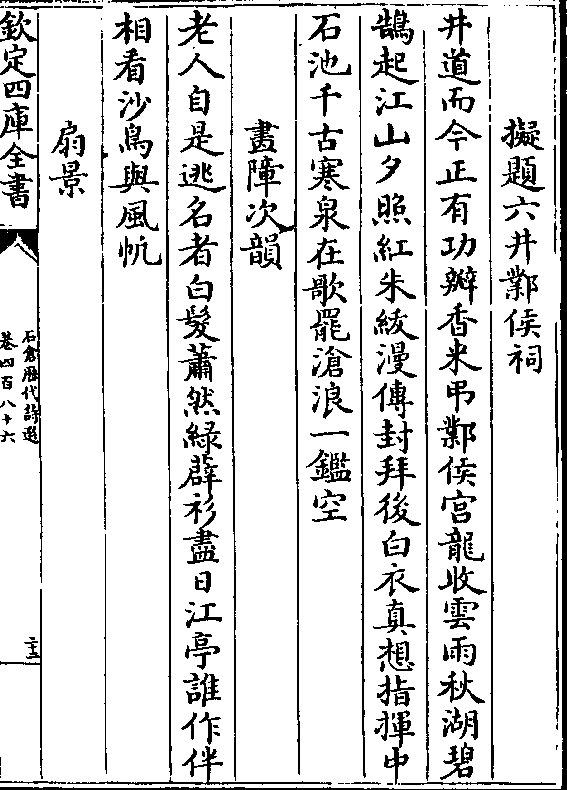 擬題六井鄴侯祠
井道而今正有功瓣香来弔鄴侯宮龍收雲雨秋湖碧
鵲起江山夕照紅朱綾漫傳封拜後白衣真想指揮中
石池千古寒泉在歌罷滄浪一鑑空
畫障次韻
老人自是逃名者白髮蕭然緑薜衫盡日江亭誰作伴
相看沙鳥與風帆
扇景
欽定四庫全書
石倉歷代詩選
卷四百八十六